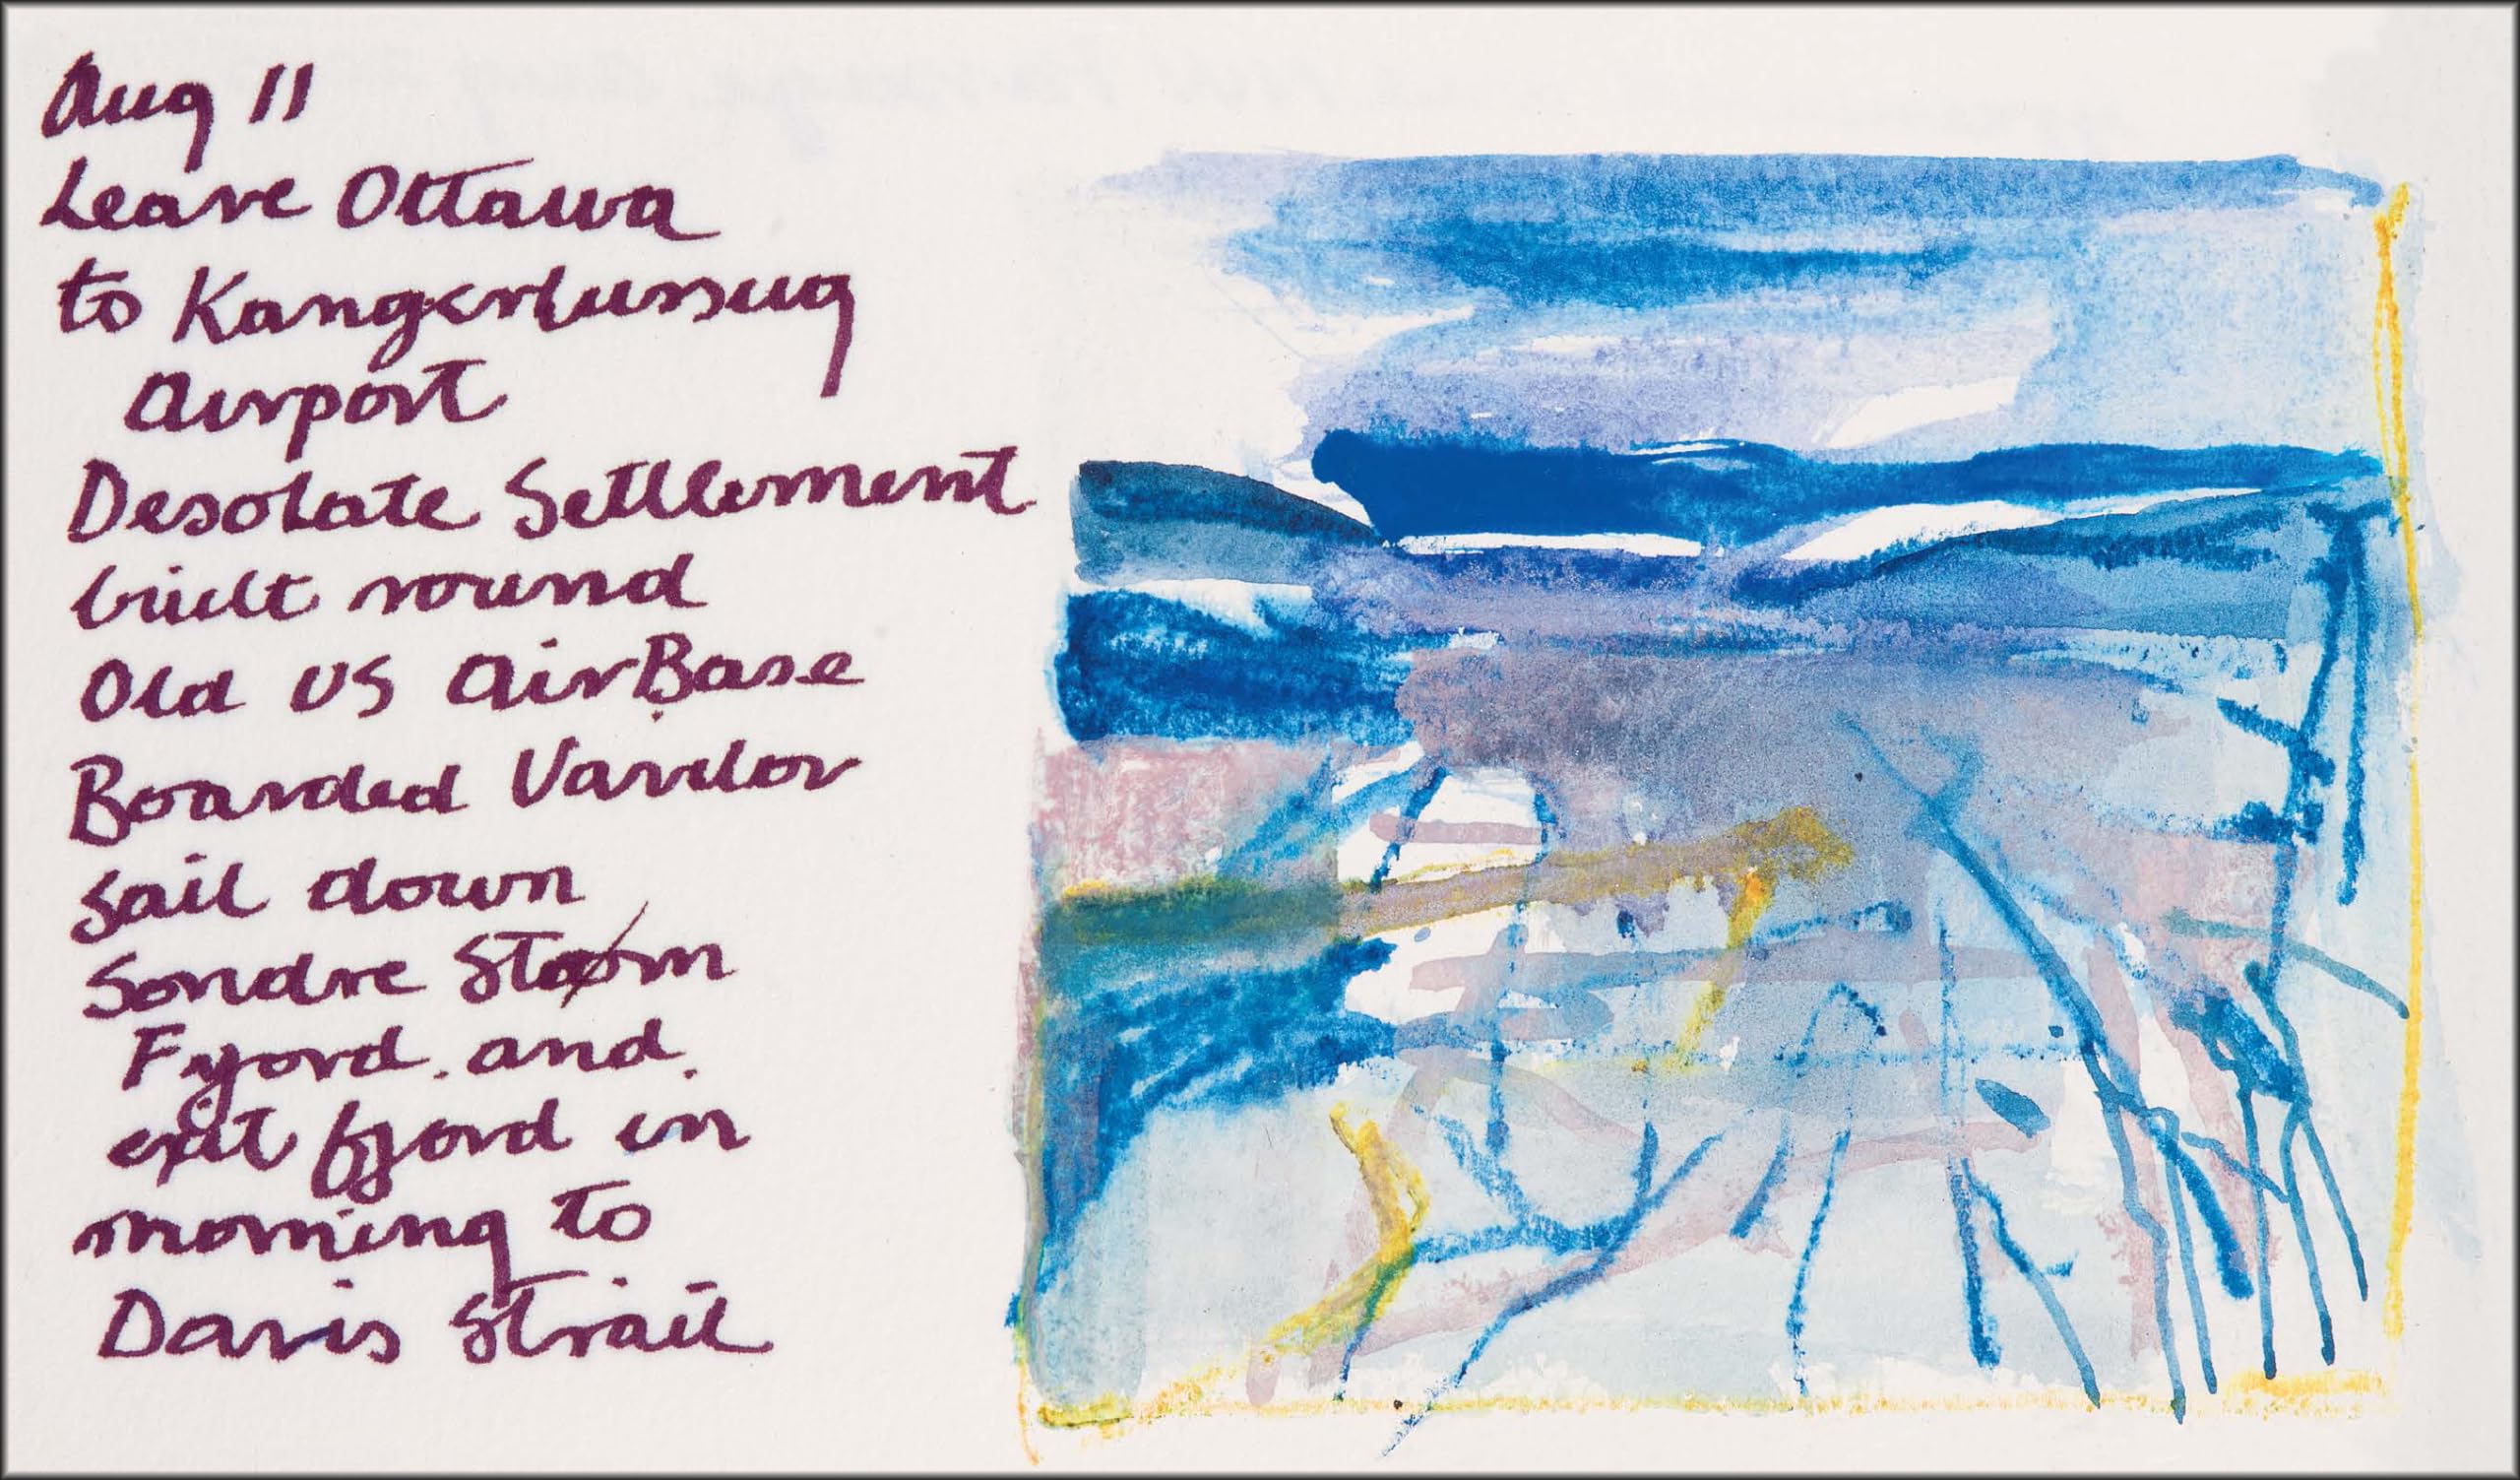 Aug 11
Leave Ottawa
to Kangerlussug
Airport
Desolate Settlement
built round
Old US AirBase
Boarded Vavilov
sail down
Sondre Strom
Fyord. and.
exit fjord in
morning to
Davis Strait